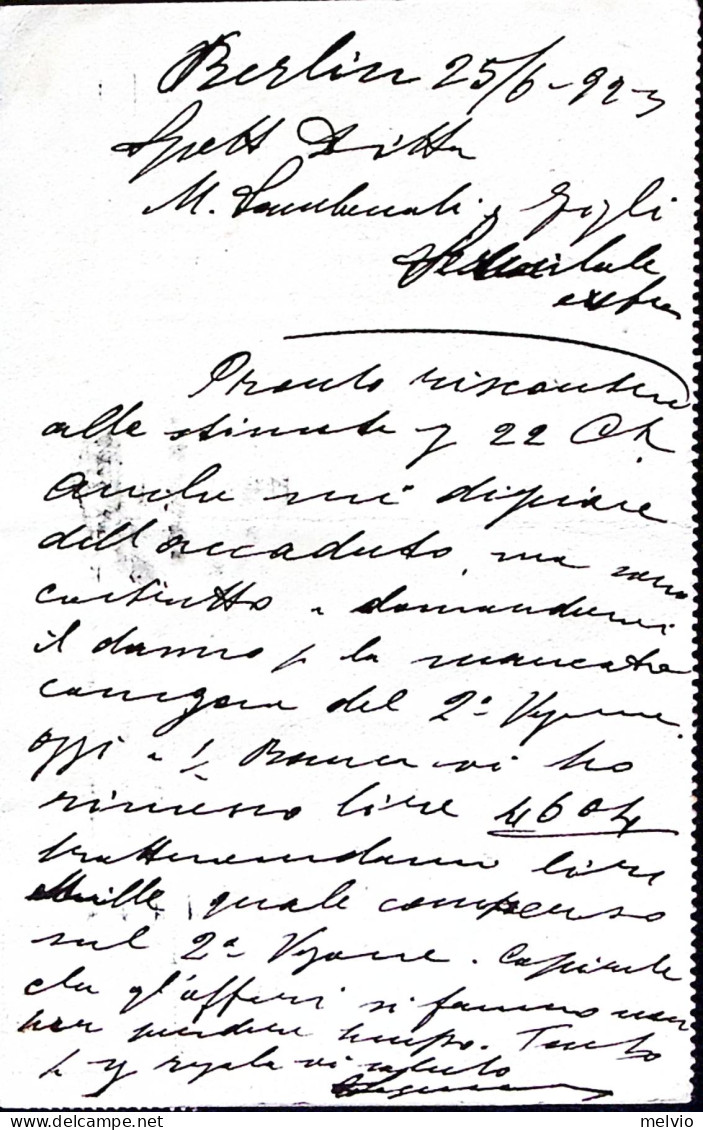 Berlin 25/6-92-3
Spett Ditta
M. & Figli
Pronto riscontro
alle stimate 22
Anche mi dispiace
dell'accaduto, ma sono
costretto a domandarvi
il danno p la mancata
consegna del 2º Vagone.
oggi a 1/2 Banca vi ho
rimesso lire 4604
trattenendomi lire
Mille quale compenso
sul 2º Vagone. Capirete
che gl'affari si fanno non
per perdere tempo. Tanto
p regola vi saluto
melvio